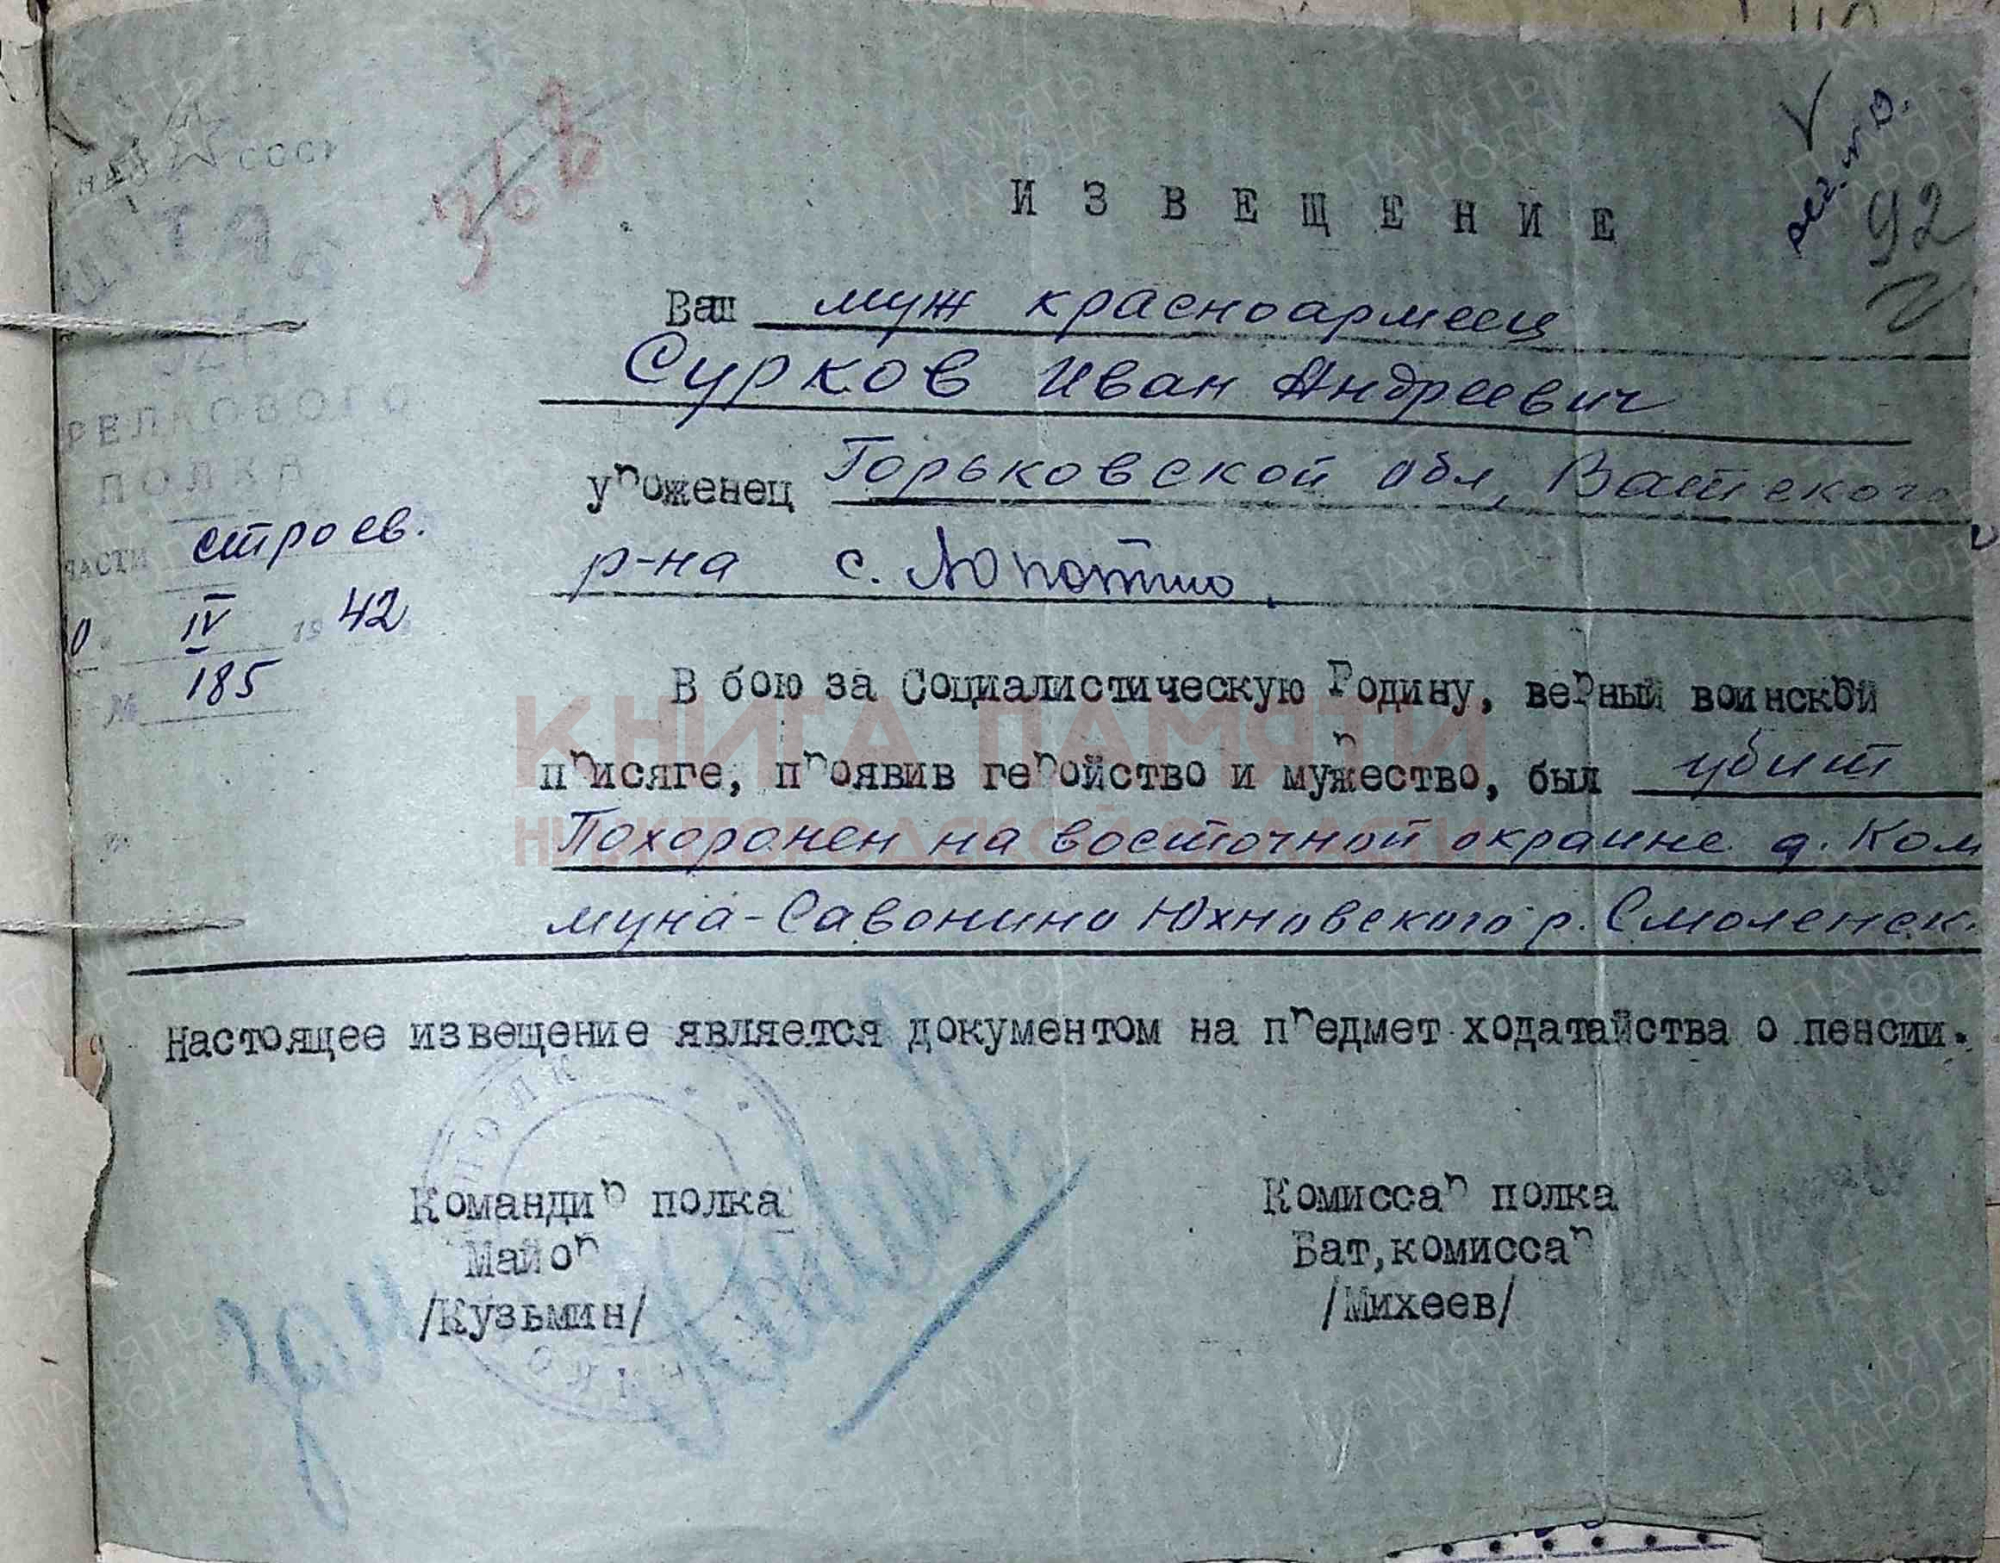 368
ИЗВЕЩЕНИЕ
92
Ваш муж красноармеец
Сурков Иван Андреевич
уроженец Горьковской обл, Ватского
р-на с.
РЕЛКОВОГО
ПОЛКА
ЧАСТИ строев.
IV 1942
№ 185
В бою за Социалистическую Родину, верный воинской
присяге, проявив геройство и мужество, был убит
Похоронен на восточной окраине д. Ком
муна-Савонино Юхновского р. Смоленск.
Настоящее извещение является документом на предмет ходатайства о пенсии.
Командир полка
Майор
/Кузьмин/
Зам
Комиссар полка
Бат,комиссар
/Михеев/
КНИГА ПАМЯТИ
НИЖЕГОРОДСКОЙ ОБЛАСТИ
ПАМЯТЬ
НАРОДА